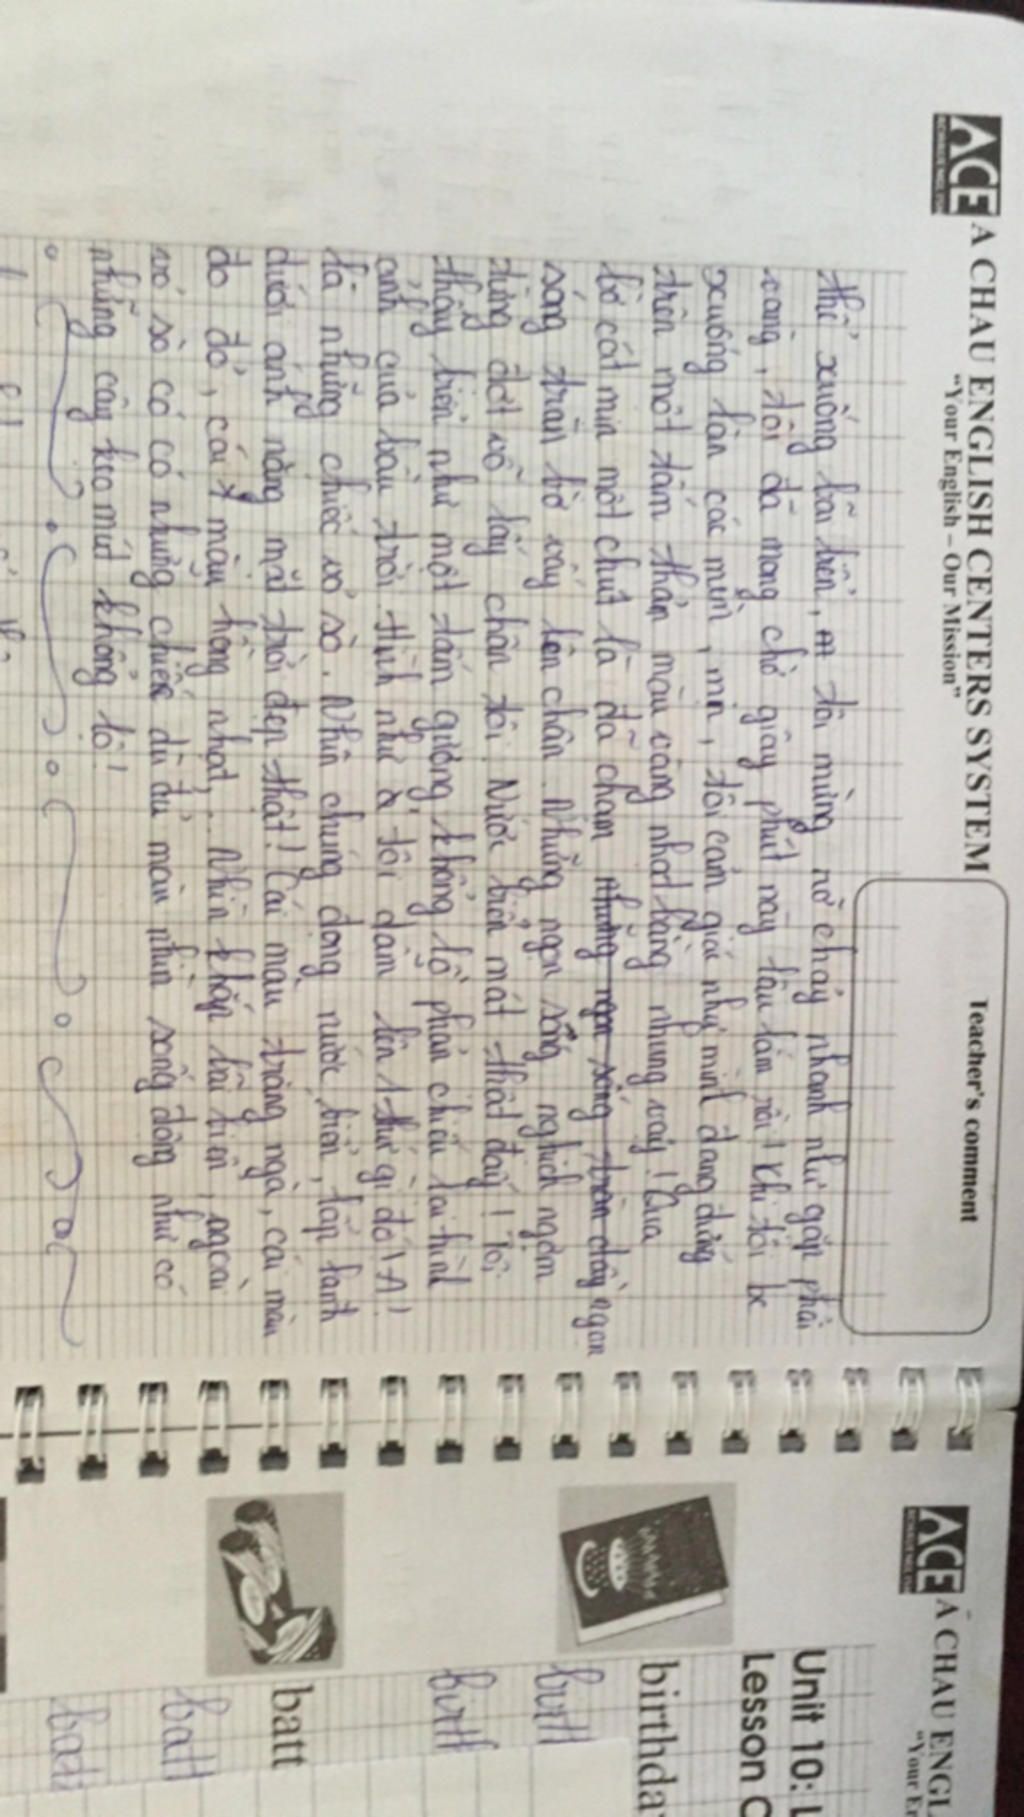 ACE
A CHAU ENGLISH CENTERS SYSTEM
"Your English – Our Mission"
Teacher's comment
thể xuống bãi biển, tôi mừng nở chạy nhanh như gặp phải
vàng, tôi đã mong chờ giây phút này lâu lắm rồi! Khi tôi bc
xuống làn các mền, mịn, tôi cảm giác như mình đang đứng
trên một tấm thản màu vàng nhạt bằng nhung vậy! Qua
bờ cát mịn một chút là đã chạm những ngọn sóng tràn chầy ngon
sóng tràn bờ vây lên chân. Những ngọn sóng nghịch ngợm
từng đợt vỗ lấy chân tôi. Nước biển mát thật đấy! Tôi
thấy biển như một tấm gương khổng lồ phản chiếu lại hình
ảnh của bầu trời. Hình như tôi dẫm lên 1 thứ gì đó! A!
là những chiếc vỏ sò. Nhìn chúng dọng nước biển, lấp lanh
dưới ánh nắng mặt trời đẹp thật! Cái màu trắng ngà, cái màu
đo đỏ, cái màu hồng nhạt,... Nhìn khắp bãi biển, ngoài
vỏ sò có có những chiếc dù đủ màu nhìn sống động như có
những cây kẹo mút khổng lồ!
ACE
Á CHAU ENGL
Unit 10: L
Lesson
birthda
birth
birth
batt
batt
batt